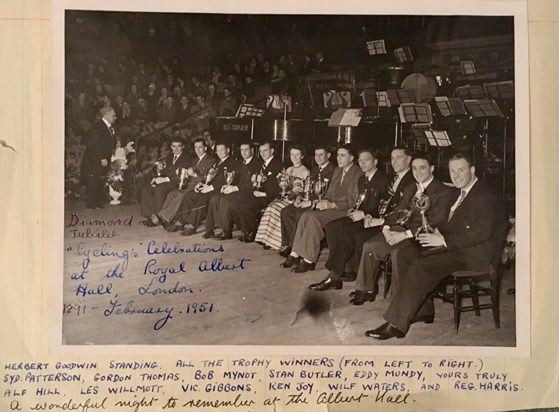 BLÜTHNER
Diamond
Jubilee
"Cycling's Celebrations
at the Royal Albert
Hall, London.
1891 - February. 1951.
HERBERT GOODWIN STANDING. ALL THE TROPHY WINNERS (FROM LEFT TO RIGHT.)
SYD. PATTERSON, GORDON THOMAS, BOB MYNOT, STAN BUTLER, EDDY MUNDY, YOURS TRULY
ALF HILL, LES WILLMOTT, VIC. GIBBONS, KEN JOY, WILF WATERS, AND REG. HARRIS.
A wonderful night to remember at the Albert Hall.